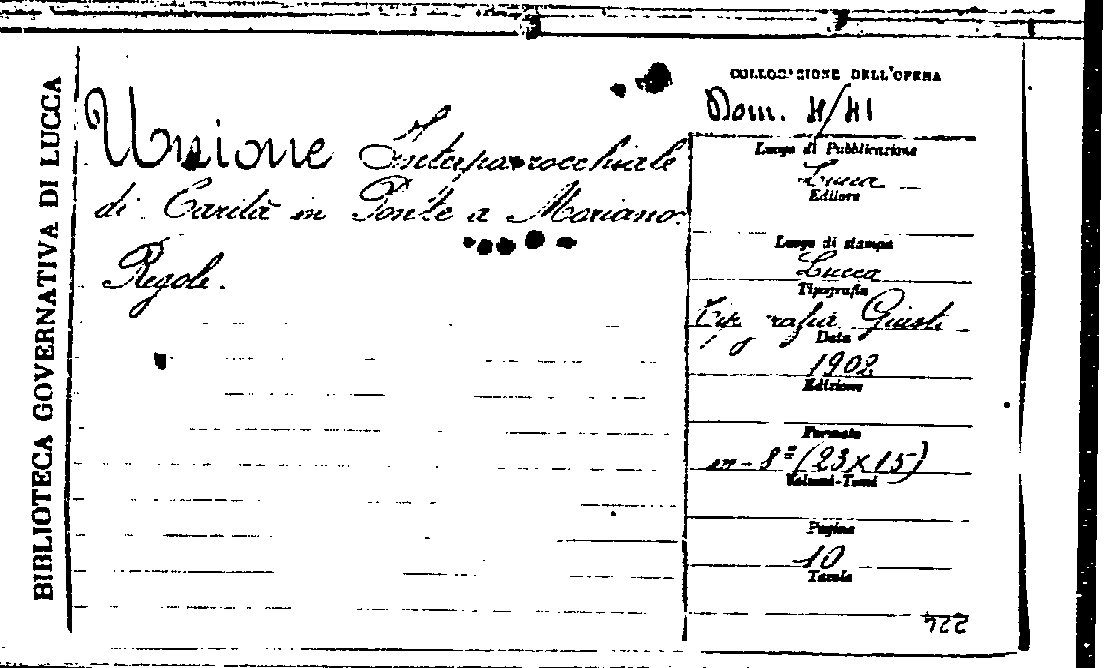 BIBLIOTECA GOVERNATIVA DI LUCCA
Unione Interparrocchiale
di Carità in Ponte a Moriano.
Regole.
COLLOCAZIONE DELL'OPERA
Dom. 4/41
Luogo di Pubblicazione
Lucca
Editore
Luogo di stampa
Lucca
Tipografia
Tipografia Giusti
Data
1902
Edizione
Formato
in-8º (23x15)
Volumi-Tomi
Pagine
10
Tavole